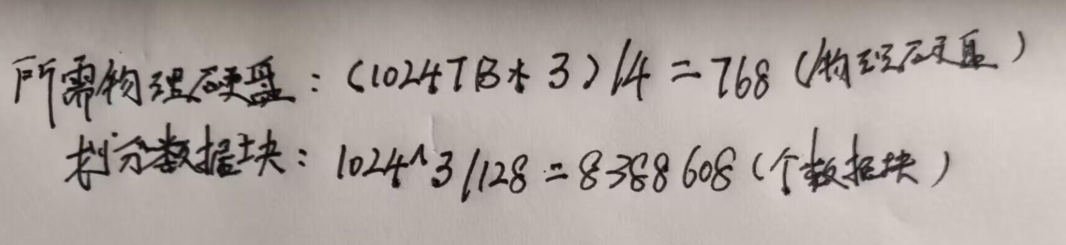 所需物理硬盘：(1024TB*3)/4=768(物理硬盘)
划分数据块：1024^3/128=8388608(个数据块)